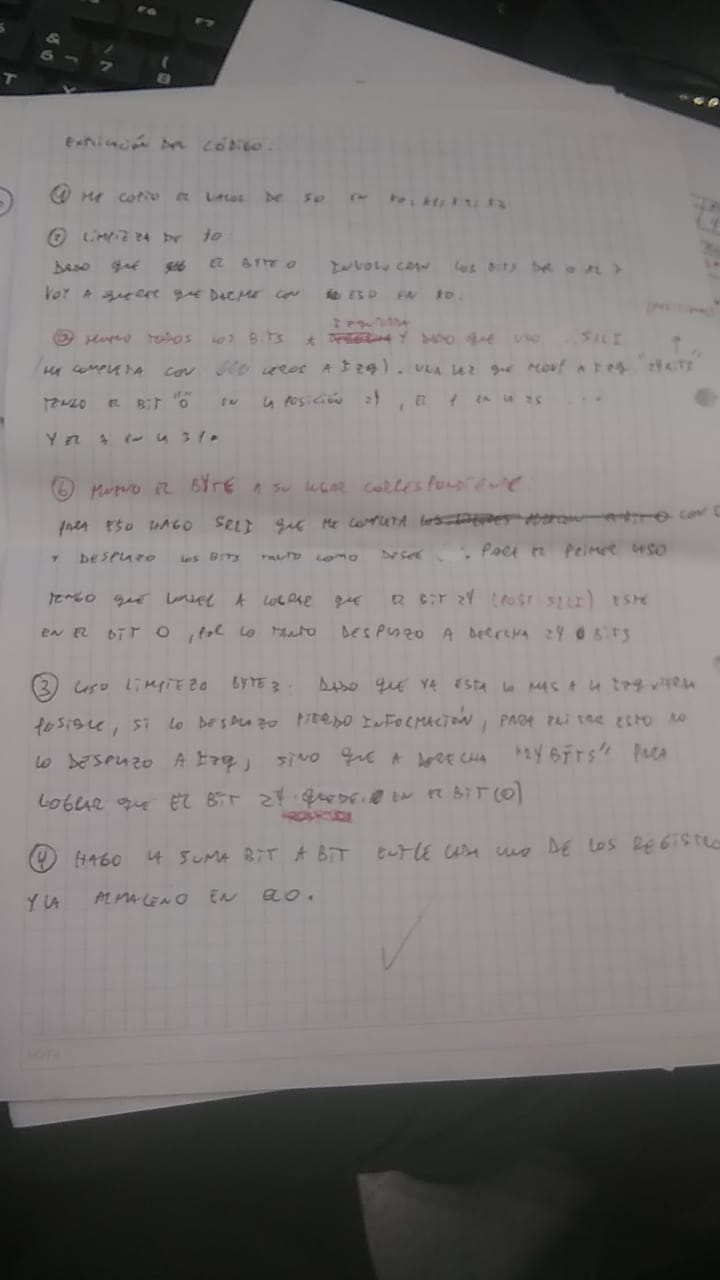 EXPLICACIÓN DEL CÓDIGO.
① ME COPIO EL VALOR DE S0 EN
② LIMPIEZA DE
DADO QUE EL BYTE 0 INVOLUCRAN LOS BITS DEL 0 AL 7
VOY A QUERER QUEDARME CON ESO EN
IZQUIERDA
ⓐ MUEVO TODOS LOS BITS A Y DADO QUE USO SLLI
(ME COMPLETA CON CEROS A IZQ). UNA VEZ QUE MOVÍ A IZQ "24 BITS"
TENGO EL BIT "0" EN LA POSICIÓN 24, EL 1 EN LA 25 ...
Y EL 7 EN LA 31.
ⓑ MUEVO EL BYTE A SU LUGAR CORRESPONDIENTE
PARA ESO HAGO SRLI QUE ME COMPLETA CON
Y DESPLAZO LOS BITS TANTO COMO DESEE ∴ PARA EL PRIMER CASO
TENGO QUE VOLVER A LOGRAR QUE EL BIT 24 (POST SLLI) ESTE
EN EL BIT 0, POR LO TANTO DESPLAZO A DERECHA 24 BITS
③ CASO LIMPIEZO BYTE 3: DADO QUE YA ESTA LO MAS A LA IZQUIERDA
POSIBLE, SI LO DESPLAZO PIERDO INFORMACIÓN, PARA EVITAR ESTO NO
LO DESPLAZO A IZQ, SINO QUE A DERECHA "24 BITS" PARA
LOGRAR QUE EL BIT 24 QUEDE EN EL BIT (0)
④ HAGO LA SUMA BIT A BIT ENTRE CADA UNO DE LOS REGISTRO
Y LA ALMACENO EN
NOTA